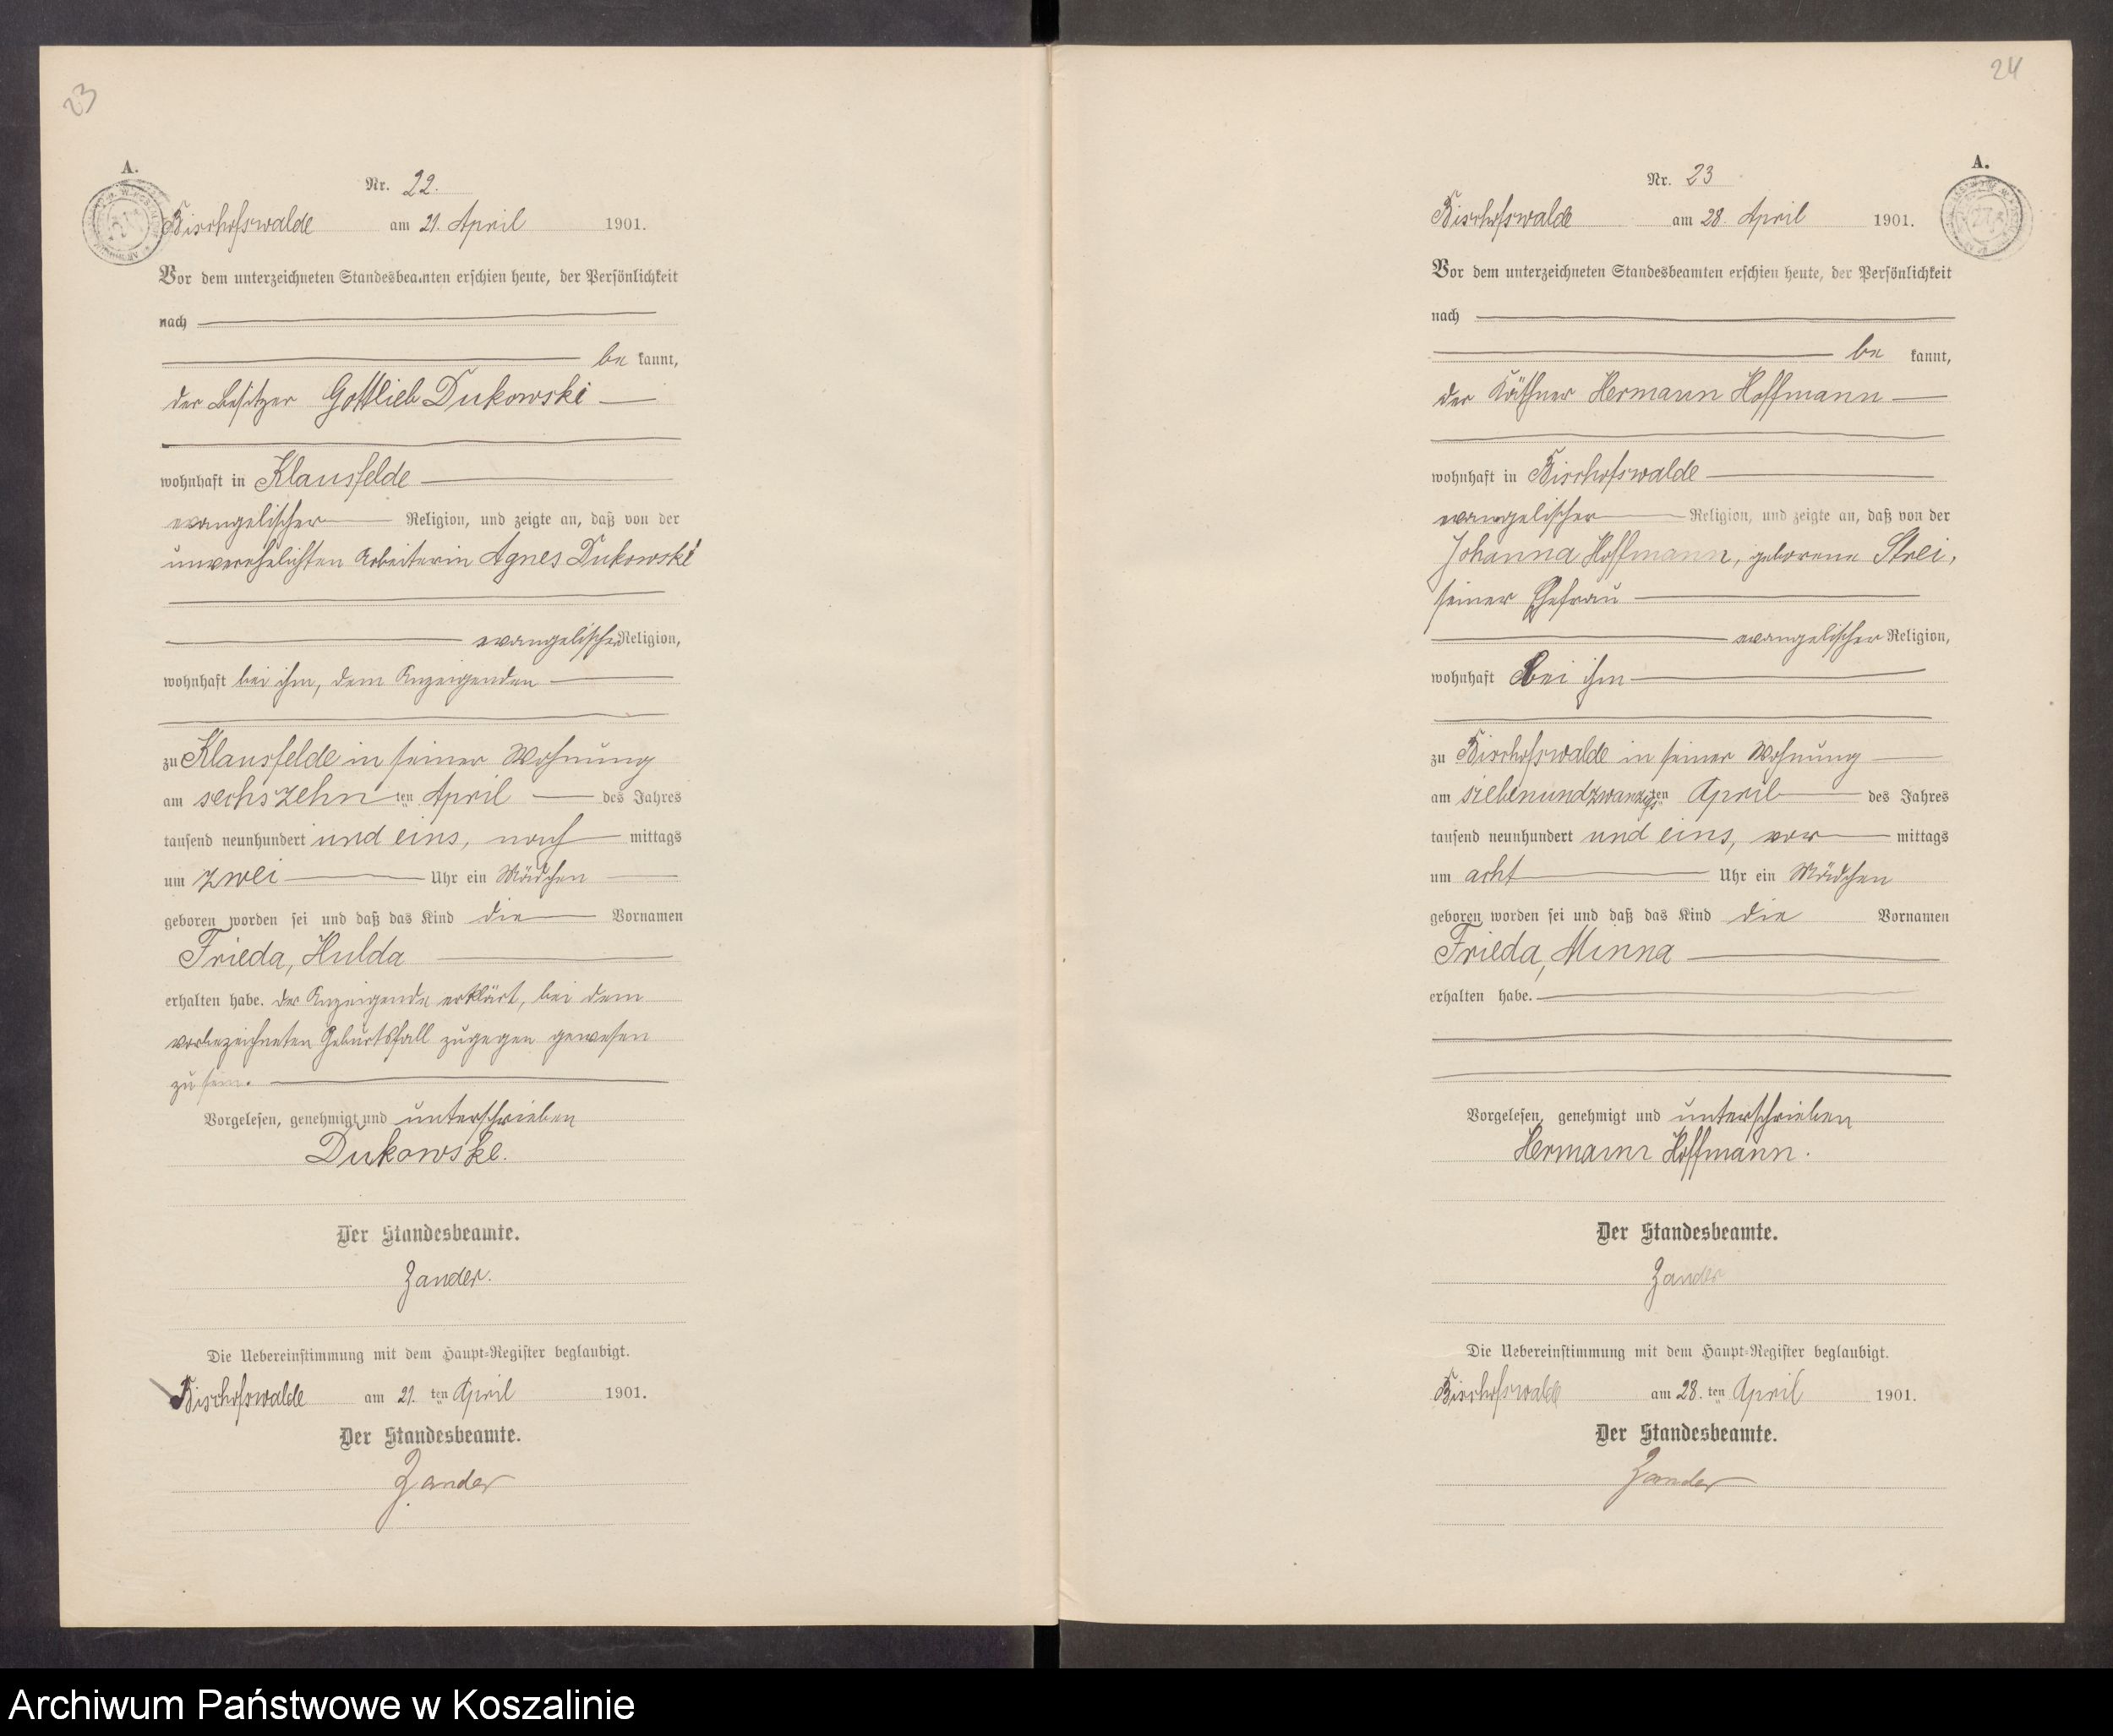 23
A.
Nr. 22.
Bischofswalde am 21. April 1901.
Vor dem unterzeichneten Standesbeamten erschien heute, der Persönlichkeit
nach
be kannt,
der Besitzer Gottlieb Dukowski
wohnhaft in Klausfelde
evangelischer Religion, und zeigte an, daß von der
unverehelichten Arbeiterin Agnes Dukowski
evangelischer Religion,
wohnhaft bei ihm, dem Anzeigenden
zu Klausfelde in seiner Wohnung
am sechszehn ten April des Jahres
tausend neunhundert und eins, nach mittags
um zwei Uhr ein Mädchen
geboren worden sei und daß das Kind die Vornamen
Frieda, Hulda
erhalten habe. Der Anzeigende erklärt, bei dem
vorbezeichneten Geburtsfall zugegen gewesen
zu sein.
Vorgelesen, genehmigt und unterschrieben
Dukowske.
Der Standesbeamte.
Zander.
Die Uebereinstimmung mit dem Haupt-Register beglaubigt.
Bischofswalde am 21. ten April 1901.
Der Standesbeamte.
Zander
24
A.
Nr. 23
Bischofswalde am 28. April 1901.
Vor dem unterzeichneten Standesbeamten erschien heute, der Persönlichkeit
nach
be kannt,
der Käthner Hermann Hoffmann
wohnhaft in Bischofswalde
evangelischer Religion, und zeigte an, daß von der
Johanna Hoffmann, geborene Strei,
seiner Ehefrau
evangelischer Religion,
wohnhaft bei ihm
zu Bischofswalde in seiner Wohnung
am siebenundzwanzigs ten April des Jahres
tausend neunhundert und eins, vor mittags
um acht Uhr ein Mädchen
geboren worden sei und daß das Kind die Vornamen
Frieda, Minna
erhalten habe.
Vorgelesen, genehmigt und unterschrieben
Hermann Hoffmann.
Der Standesbeamte.
Zander
Die Uebereinstimmung mit dem Haupt-Register beglaubigt.
Bischofswalde am 28. ten April 1901.
Der Standesbeamte.
Zander
Archiwum Państwowe w Koszalinie